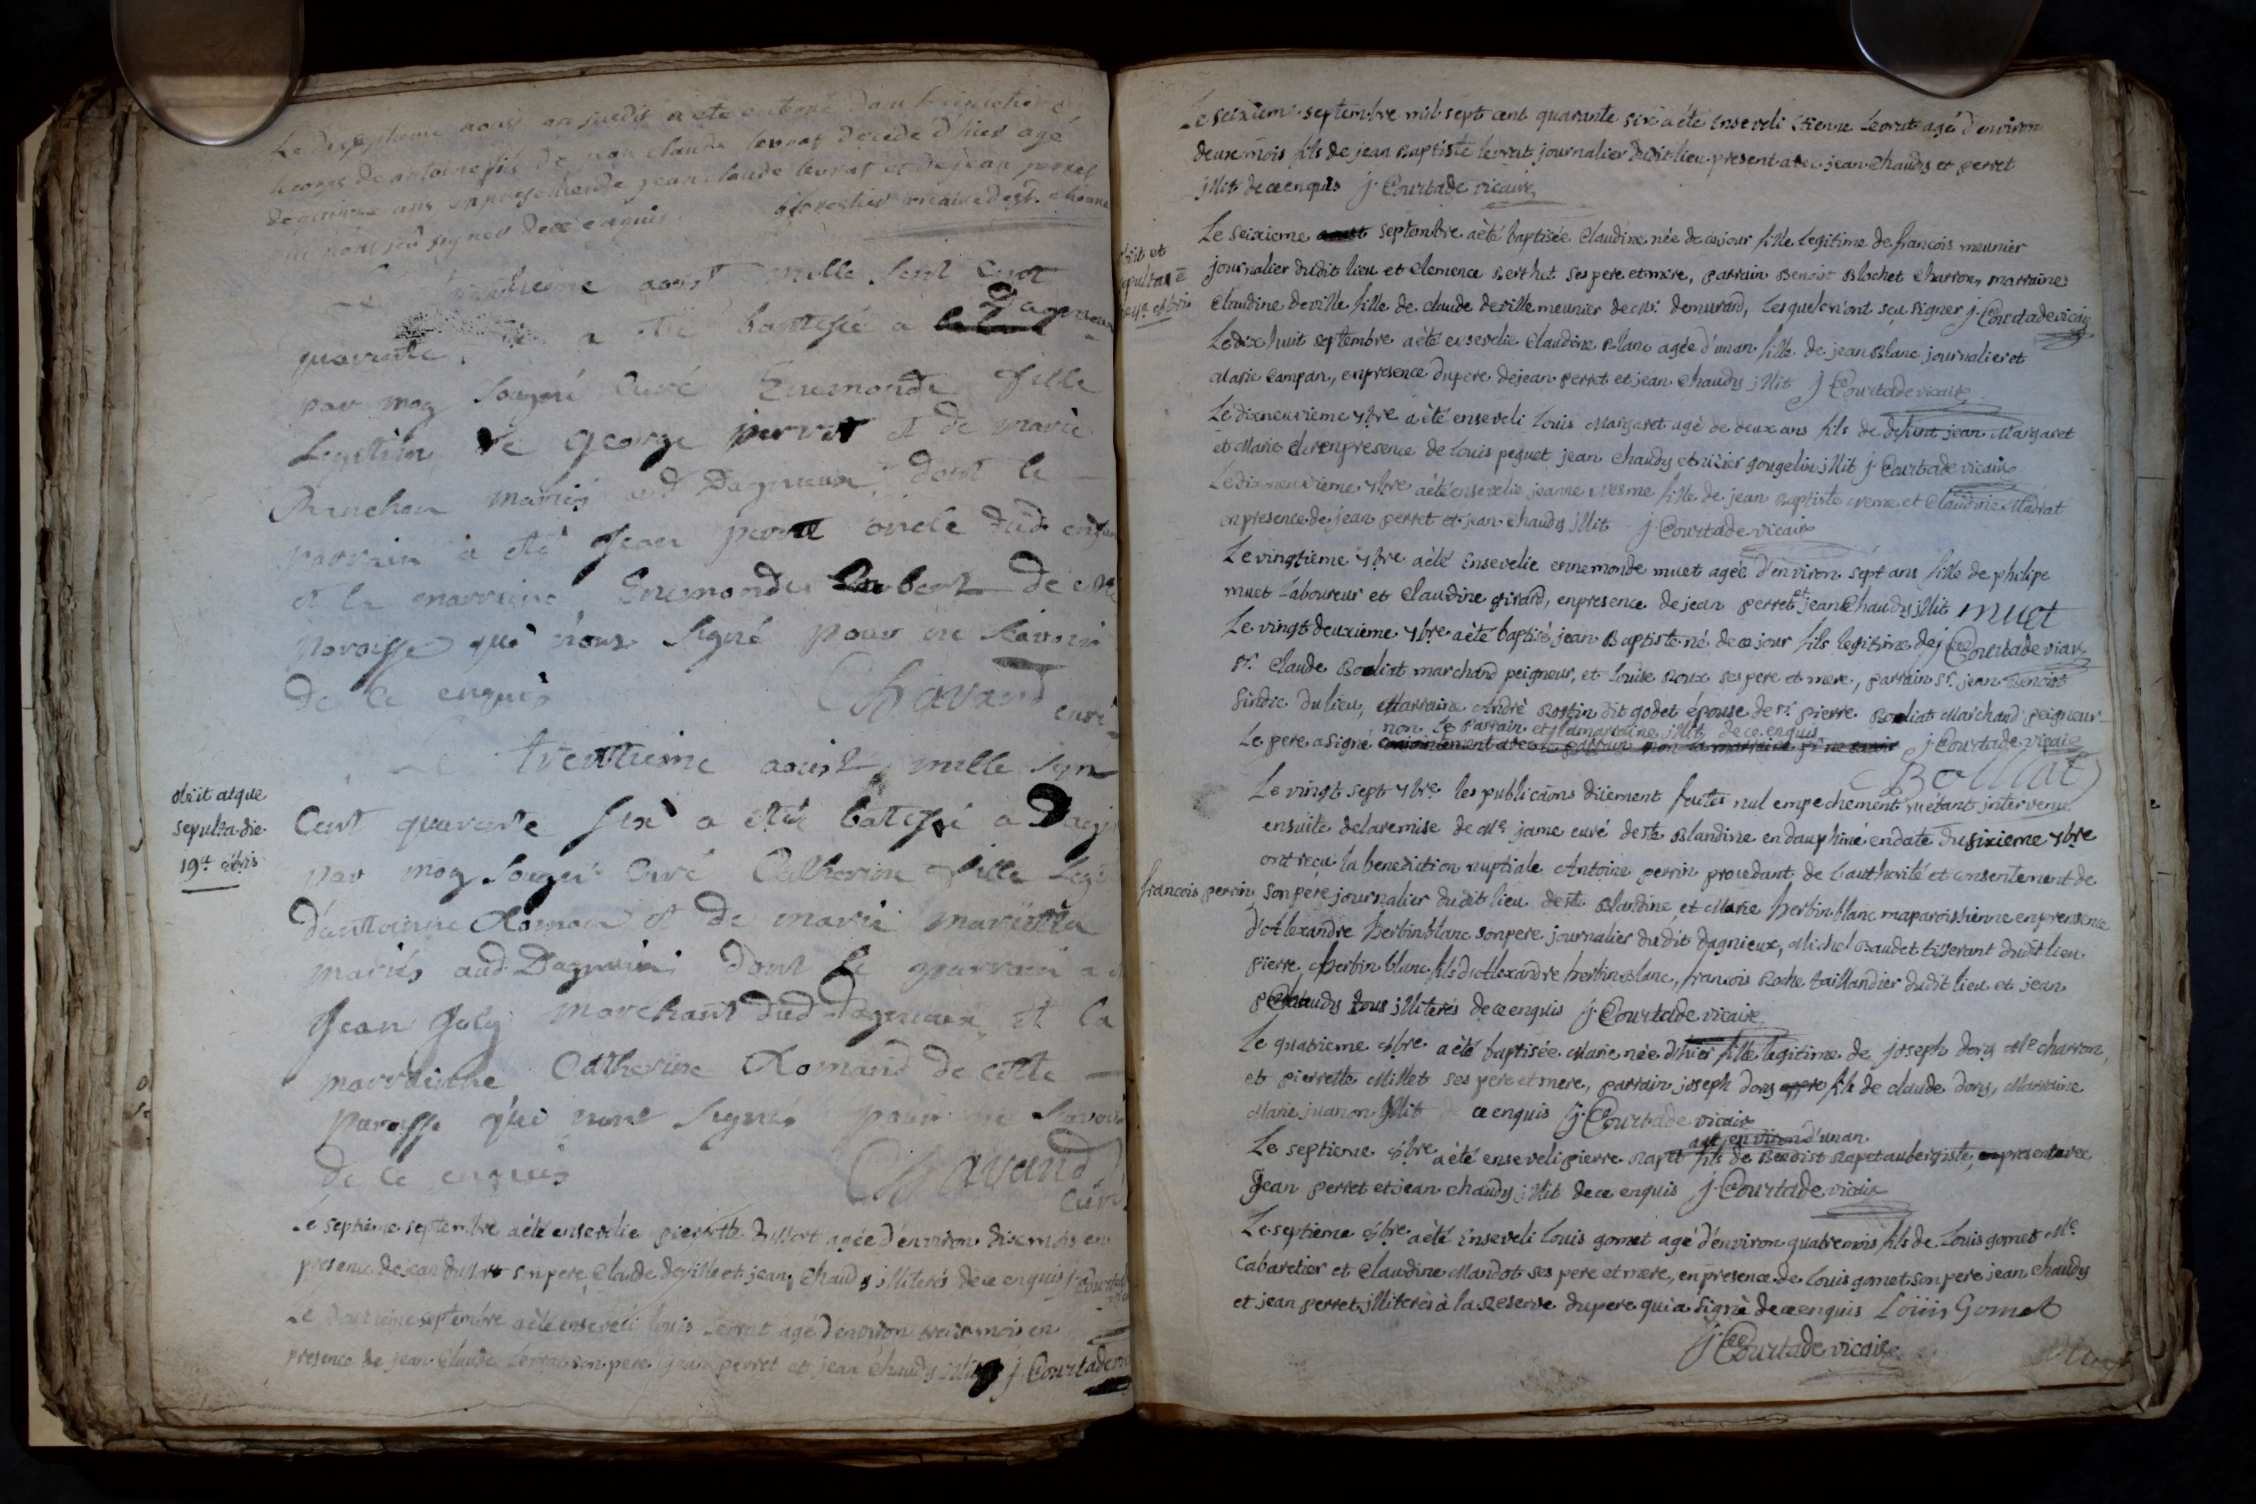 Le dixseptieme aoust an susdit a ete enterré dans
le corps de antoine fils de jean claude levrat decedé d'hier agé
de quinze ans en presence de jean claude levrat et de jean perret
qui n'ont sçu signer de ce enquis vicaire de st. etienne
aoust mille sept cent
quarante a eté batisé a Dagnieux
par moy soussigné Curé Ennemonde fille
Legitime de George perret et de marie
mariés aud Dagnieux, dont le
parrain a eté Jean perret oncle dud enfant
et la marraine Ennemonde de cette
paroisse qui n'ont signé pour ne sçavoir
de ce enquis Chavand curé
Le trentieme aoust mille sept
obiit atque
sepulta die
19a 8bris
Cent quarante six a eté batisé a Dagni
par moy soussigné Curé Catherine fille Legi
d'antoinne Romand et de marie
mariés aud Dagnieux dont le parrain a
Jean Joly marchant dud Dagnieux et la
marrainne Catherine Romand de cette
paroisse qui n'ont signé pour ne sçavoir
de ce enquis Chavand
Curé
Le septieme septembre a été ensevelie pierrette Dussort agée d'environ dix mois en
presence de jean Dussort son pere, Claude deville et jean chaudy illiterés de ce enquis j Courtade
Le douzieme septembre a été enseveli louis Levrat agé d'environ treize mois en
presence de jean Claude Levrat son pere jean perret et jean chaudy j. Courtade
Le seizieme septembre mil sept cent quarante six a été enseveli Etienne Levrat agé d'environ
deux mois fils de jean Baptiste levrat journalier dudit lieu present avec jean chaudy et perret
illit. de ce enquis j. Courtade vicaire
Le seizieme aoust septembre a été baptisée Claudine née de ce jour fille legitime de francois meunier
obiit et
sepulta e
journalier dudit lieu et Clemence Berthet ses pere et mere, parrain Benoit Blochet charron, marraine
Claudine deville fille de claude deville meunier de mr. demurard, lesquels n'ont sçu signer j. Courtade vicaire
Le dix huit septembre a été ensevelie Claudine Blanc agée d'un an fille de jean Blanc journalier et
Marie Campan, en presence du pere de jean perret et jean chaudy illit. j Courtade vicaire
Le dixneuvieme 7bre a été enseveli Louis Margaret agé de deux ans fils de defunt jean Margaret
et Marie en presence de Louis peguet jean chaudy et nizier gougelin illit j Courtade vicaire
Le dixneuvieme 7bre a été ensevelie jeanne fille de jean Baptiste et Claudine Madrat
en presence de jean perret et jean chaudy illit j Courtade vicaire
Le vingtieme 7bre a été ensevelie ennemonde muet agée d'environ sept ans fille de philipe
muet Laboureur et Claudine girard, en presence de jean perret et jean Chaudy illit muet
Le vingt deuxieme 7bre a été baptisé jean Baptiste né de ce jour fils legitime de j Courtade vicaire
sr. Claude Bolliat marchand peigneur, et Louise Roux ses pere et mere, parrain sr. jean Benoist
sindic du lieu, Marraine Andrè Rostin dit godet épouse de sr. pierre Bolliat Marchand peigneur
non le parrain et la marraine illit. de ce enquis
Le pere a signé j Courtade vicaire
Bolliat
Le vingt sept 7bre les publications düement faites nul empechement n'etant intervenu
ensuite de la remise de Me. jame curé de ste Blandine en dauphiné en date du sixieme 7bre
ont reçu la benediction nuptiale Antoine perrin procedant de l'authorité et consentement de
francois perrin son pere journalier dudit lieu de ste Blandine, et Marie herbin blanc ma paroissienne en presence
d'Alexandre Herbin blanc son pere journalier du dit dagnieux, Michel Baudet tisserant dudit lieu
pierre herbin blanc fils d'Alexandre herbin blanc, francois Roche taillandier dudit lieu et jean
Chaudy tous illiterés de ce enquis j. Courtade vicaire
Le quatrieme 8bre a été baptisée Marie née d'hier fille legitime de joseph dory Me charron,
et pierrette Millet ses pere et mere, parrain joseph dory fils de claude dory, Marraine
Marie juanon illit de ce enquis j. Courtade vicaire
agé environ d'un an
Le septieme 8bre a été enseveli pierre Rapet fils de Benoist Rapet aubergiste, en present avec
Jean perret et jean chaudy illit de ce enquis j. Courtade vicaire
Le septieme 8bre a été enseveli Louis gomet agé d'environ quatre mois fils de Louis gomet Me.
Cabaretier et Claudine Mandot ses pere et mere, en presence de Louis gomet son pere jean chaudy
et jean perret illiterés à la Reserve du pere qui a signé de ce enquis Loüis Gomet
j. Courtade vicaire